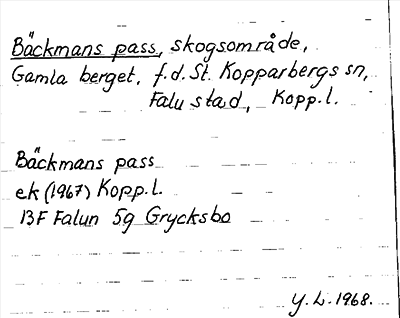 Bäckmans pass, skogsområde,
Gamla berget, f.d. St. Kopparbergs sn,
Falu stad, Kopp.l.
Bäckmans pass
ek (1967) Kopp.l.
13F Falun 5g Grycksbo
Y.L. 1968.